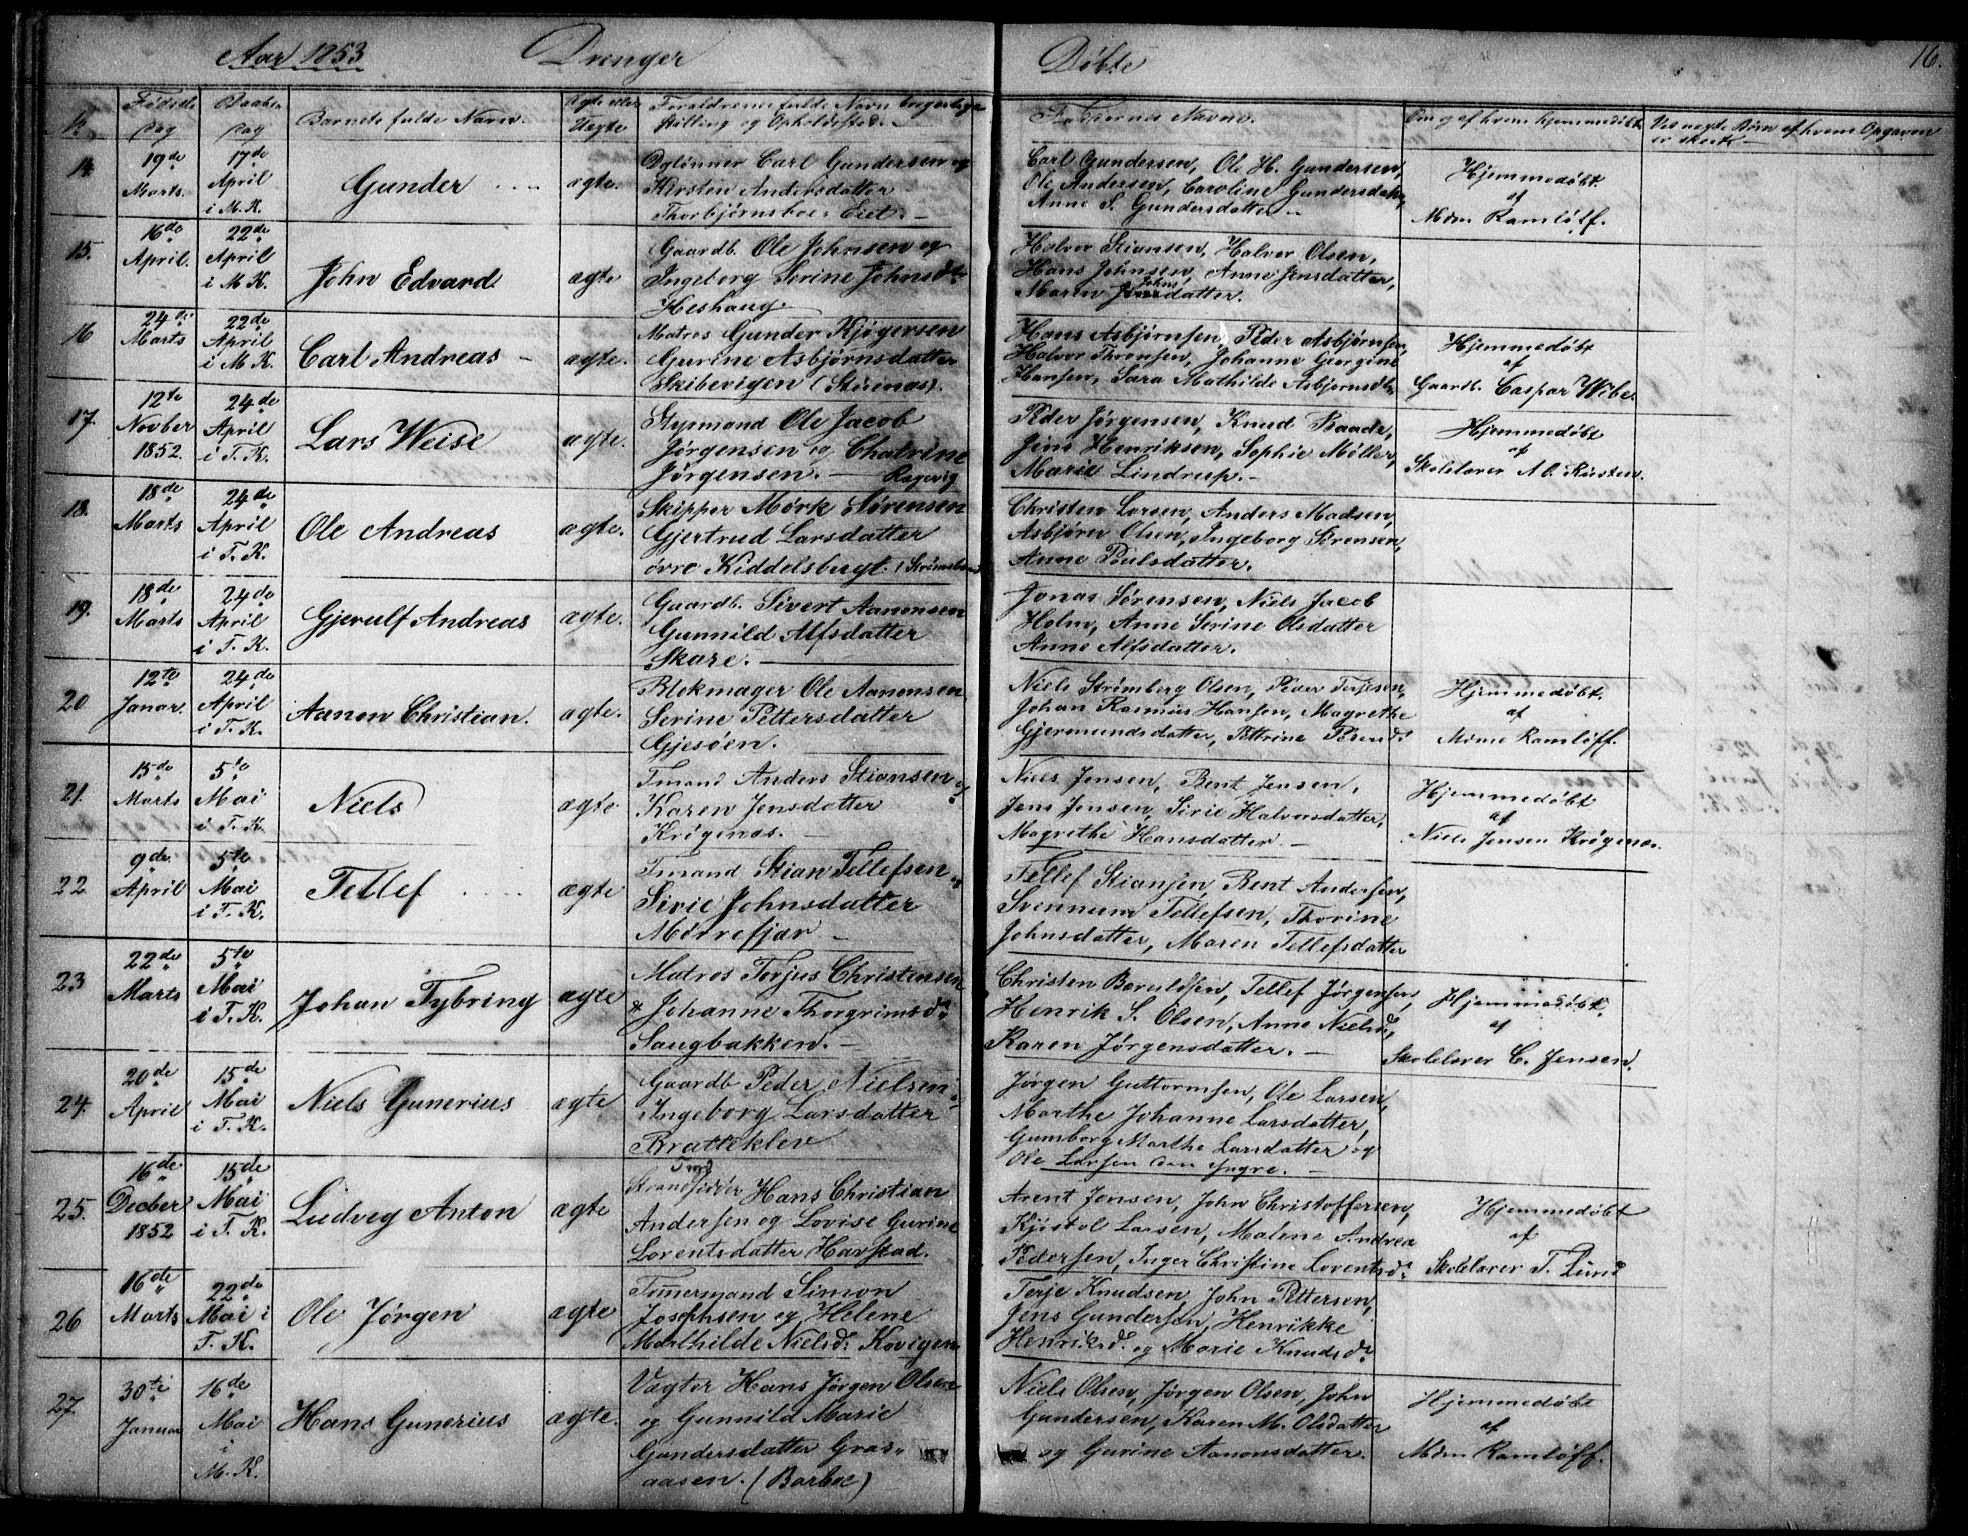 Aar 1853 Drenger Døbte 16.
No. Fødsels Dag Daabs Dag Barnets fulde Navn. Ægte eller Uægte Forældrenes fulde Navn borgerlige Stilling og Opholdssted. Faddernes Navne. Om og af hvem hjemmedøbt Ved uægte Børn af hvem Opgaven er skeet
14 19de Marts. 17de April i M. K. Gunder ægte. Oglønner Carl Gundersen og
Kirsten Andersdatter
Thorbjørnsboe Eiet.
Carl Gundersen, Ole H. Gundersen,
Ole Andersen, Caroline Gundersdatter,
Anne S. Gundersdatter
Hjemmedøbt
af
Mdm Ramløff.
15. 16de April. 22de April i M K. John Edvard ægte Gaardb. Ole Johnsen og
Ingeborg Serine Johnsdr
Heshaug.
Halvor Stiansen, Halvor Olsen,
Hans Johnsen, Anne Jensdatter,
Maren Johnsdatter.
16 24de Marts 22de April i M K. Carl Andreas ægte. Matros Gunder Kjøgersen
Gurine Asbjørnsdatter
Skibevigen (Stisnæs).
Hans Asbjørnsen, Peder Asbjørnsen,
Halvor Thronsen, Johanne Georgine
Hansen, Sara Mathilde Asbjørnsdr
Hjemmedøbt
af
Gaardb. Caspar Wibe.
17. 12te Novber 1852. 24de April i T. K. Lars Weise ægte. Styrmand Ole Jacob
Jørgensen og Chatrine
Jørgensen. Ragevig
Peder Jørgensen, Knud Baade,
Jens Henriksen, Sophie Møller,
Marie Lindrup.
Hjemmedøbt
af
Skolelærer A O. Kirsten.
18. 18de Marts 24de April i T. K. Ole Andreas ægte. Skipper Mørk Sørensen
Gjertrud Larsdatter
øvre Kiddelsbergt.
Christen Larsen, Anders Madsen,
Asbjørn Olsen, Ingeborg Sørensen,
Anne Poulsdatter.
19. 18de Marts 24de April i T. K. Gjerulf Andreas ægte. Gaardb. Sivert Aanonsen
Gunnild Alfsdatter
Skare.
Jonas Sørensen, Niels Jacob
Holm, Anne Serine Olsdatter
Anne Alfsdatter.
20 12te Januar. 24de April i T. K. Aanon Christian. ægte. Blokmager Ole Aanonsen
Serine Pettersdatter
Gjesøen.
Niels Strømberg Olsen, Peder Terjesen,
Johan Rasmus Hansen, Magrethe
Gjermundsdatter, Pettrine
Hjemmedøbt
af
Mdme Ramløff.
21. 15de Marts 5te Mai i T. K. Niels ægte Tmand Anders Stiansen og
Karen Jensdatter
Krøgenæs.
Niels Jensen, Bent Jensen,
Jens Jensen, Sirie Halvorsdatter,
Magrethe Hansdatter.
Hjemmedøbt
af
Niels Jensen Krøgenæs.
22 9de April 5te Mai i T. K. Tellef ægte Tmand Stian Tellefsen og
Sirie Johnsdatter
Mørrefjær
Tellef Stiansen, Bent Andersen,
Svennum Tellefsen, Thorine
Johnsdatter, Maren Tellefsdatter
23 22de Marts 5te Mai i T. K. Johan Tybring ægte Matros Torjus Christensen
& Johanne Thorgrimsdr
Saugbakken.
Christen Baruldsen, Tellef Jørgensen,
Henrik S. Olsen, Anne Nielsd,
Karen Jørgensdatter.
Hjemmedøbt
af
Skolelærer C. Jensen.
24. 20de April 15de Mai i T. K. Niels Gunerius ægte Gaardb Peder Nielsen
Ingeborg Larsdatter
Bratteklev
Jørgen Guttormsen, Ole Larsen,
Marthe Johanne Larsdatter,
Gumborg Marthe Larsdatter og
Ole Larsen den Yngre.
25. 16de Decber 1852 15de Mai i T. K. Ludvig Anton ægte Strandsidder Hans Christian
Andersen og Lovise Gurine
Lorentsdatter Havstad.
Arent Jensen, John Christoffersen,
Kjøstol Larsen, Malene Andrea
Pedersen, Inger Christine Lorentsdr
Hjemmedøbt
af
Skolelærer T. Lund
26 16de Marts 22de Mai i T. K. Ole Jørgen ægte Tømmermand Simon
Josephsen og Helene
Mathilde Nielsdr Kovigen
Terje Knudsen, John Pettersen,
Jens Gundersen, Henrikke
Henriksdr og Marie Knudsdr
27. 30te Januar 16de Mai i M. K. Hans Gunerius ægte. Vægter Hans Jørgen Olsen
og Gunnild Marie
Gundersdatter Graa-
aasen. (Barboe)
Niels Olsen, Jørgen Olsen, John
Gundersen, Karen M. Olsdatter
og Gurine Aanonsdatter.
Hjemmedøbt
af
Mdm Ramløff.